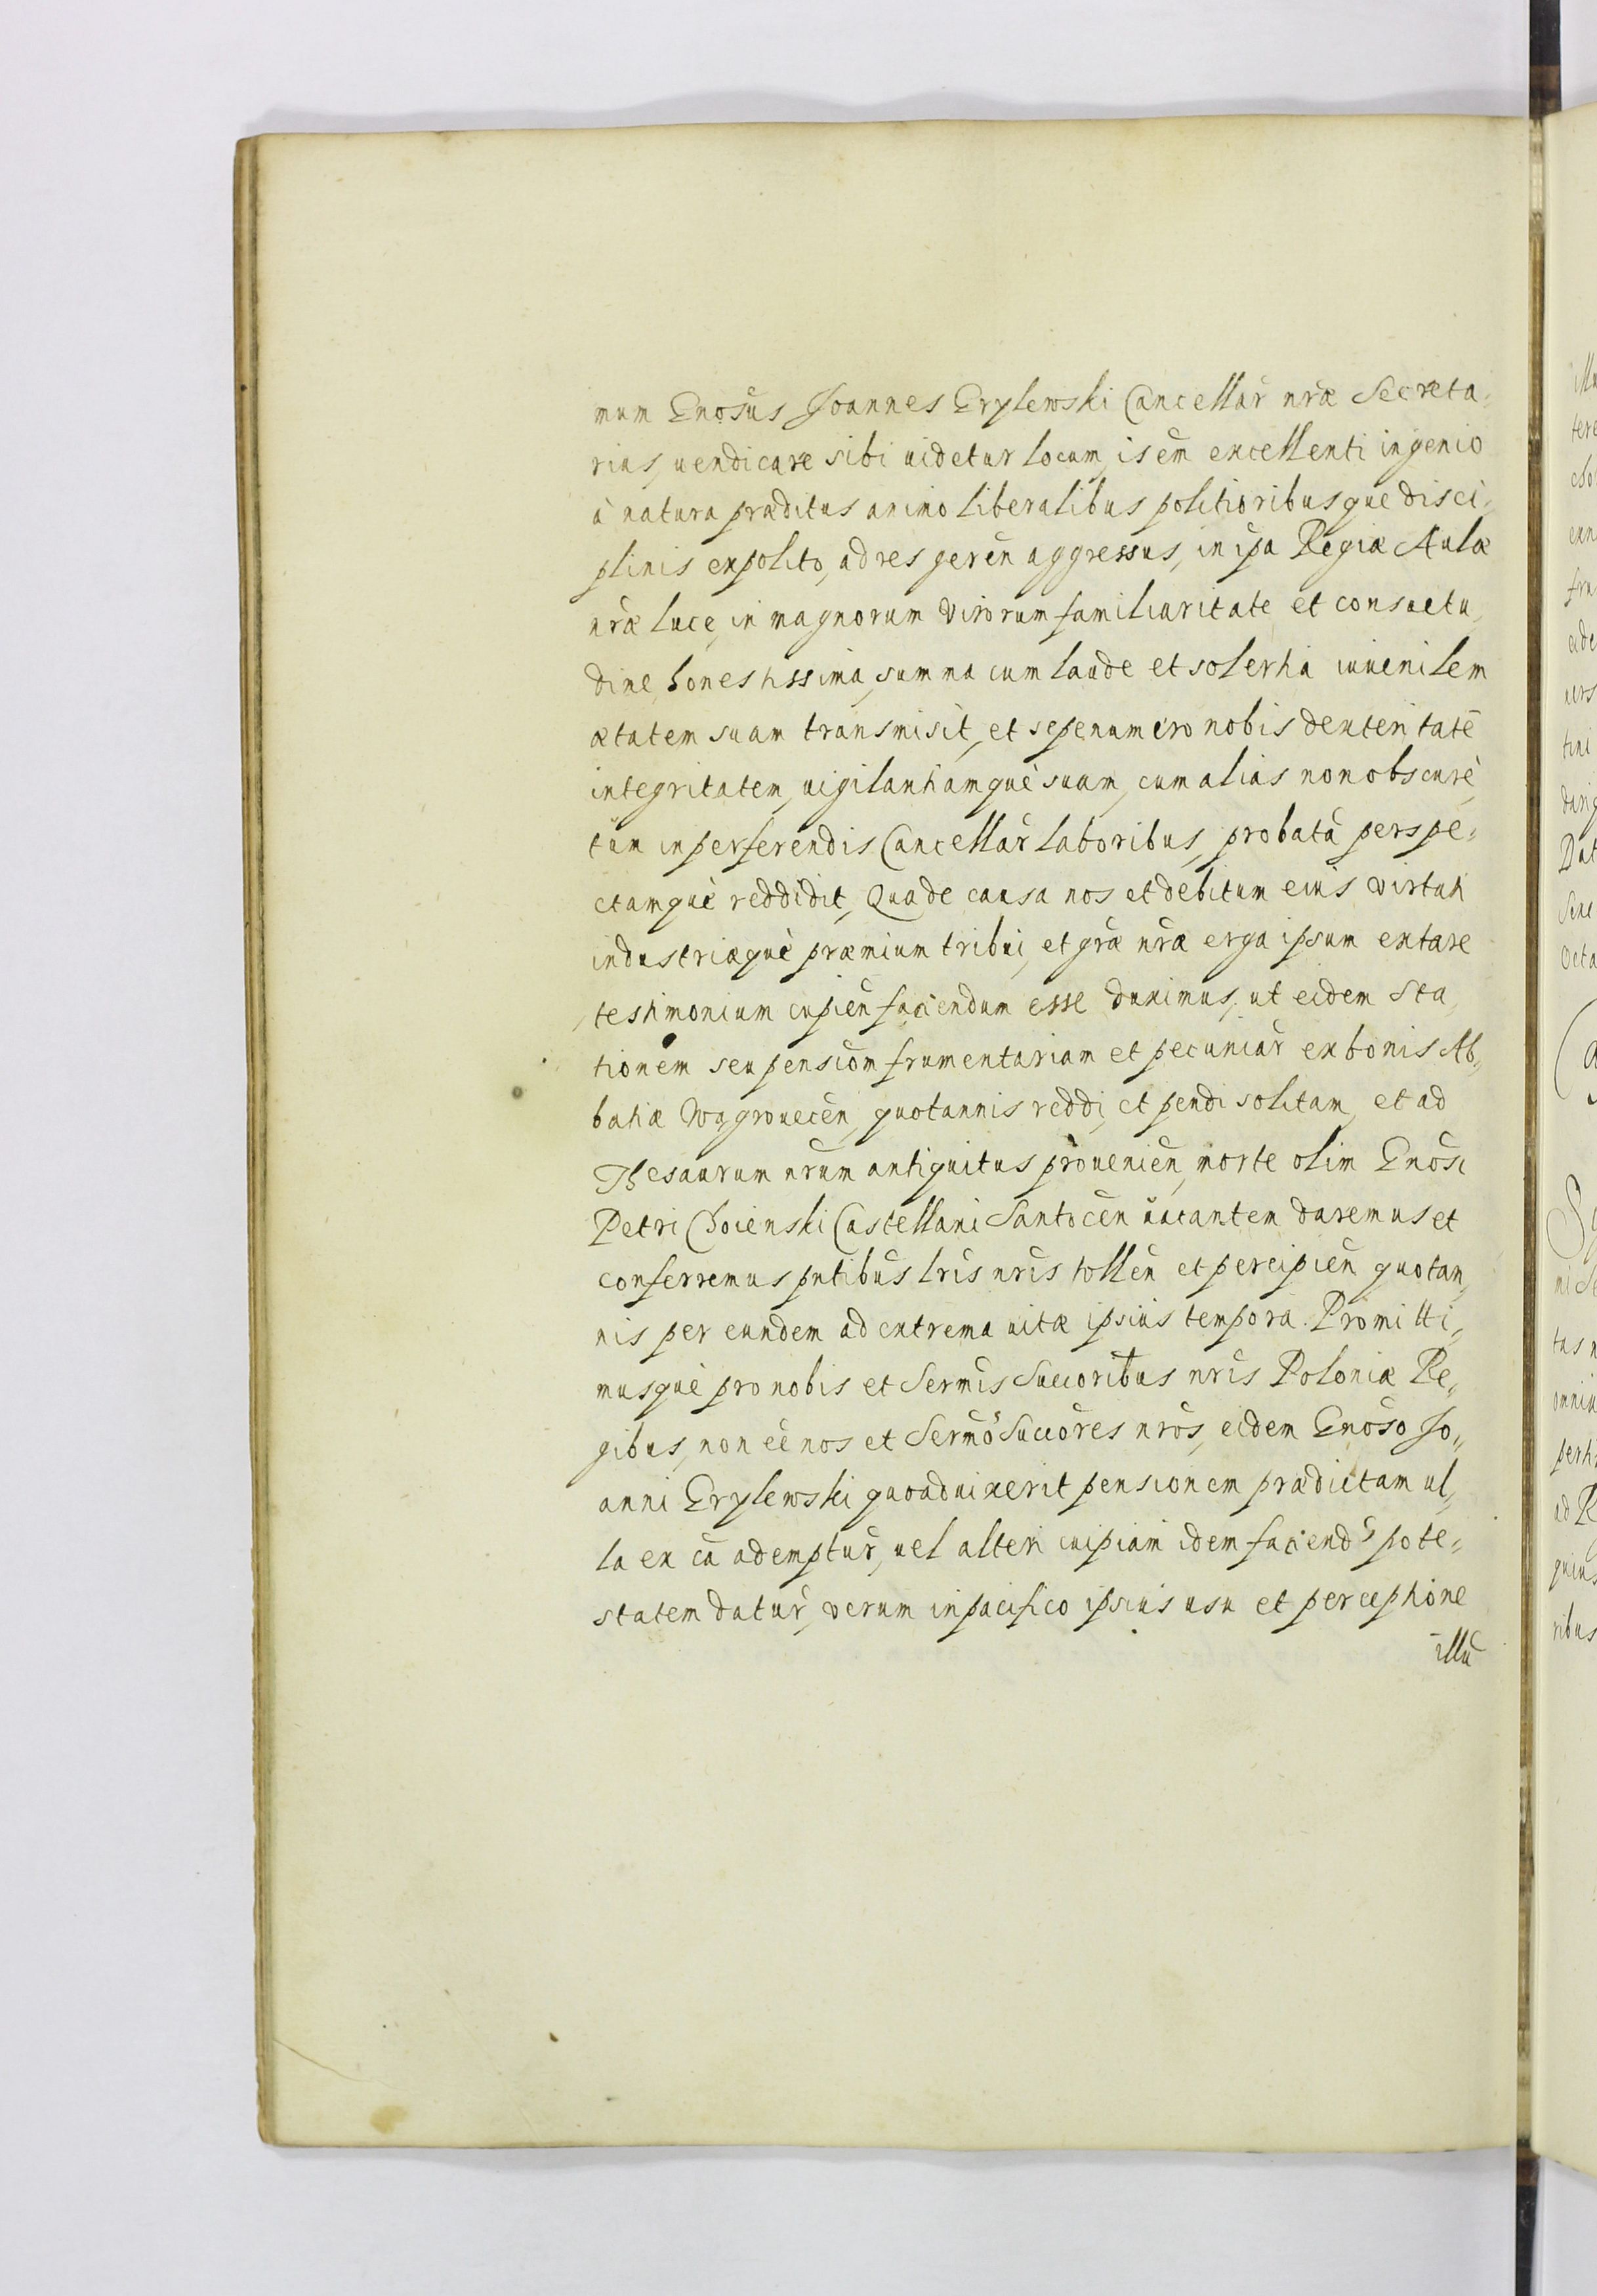 mum Gnosus Joannes Grylewski Cancellar nræ Secreta-
rius, uendicare sibi uidetur locum, is em excellenti ingenio
à natura præditus animo liberalibus politioribusque disci-
plinis expolito, ad res geren aggressus, in ipa Regiæ Aulæ
nræ luce, in magnorum virorum familiaritate et consuetu
dine honestissima, summa cum laude et solertia iuuenilem
ætatem suam transmisit, et sepenumero nobis dexteritatē
integritatem, uigilantiamquè suam, cum alias non obscurè,
tum in perferendis Cancellar laboribus, probatā perspe-
ctamquè reddidit, Qua de causa nos et debitum eius virtuti
industriæquè præmium tribui, et græ nræ erga ipsum extare
testimonium cupien faciendum esse duximus, ut eidem sta
tionem seu pension frumentariam et pecuniar ex bonis Ab-
batiæ Wagrouecen, quotannis reddi, et pendi solitam, et ad
Thesaurum nrum antiquitus prouenien, morte olim Gnosi
Petri Choienski Castellani Santocen uacantem daremus et
conferremus pntibus lris nris tollen et percipien quotan,
nis per eundem ad extrema uitæ ipsius tempora. Promitti,
musquè pro nobis et Sermis Succoribus nris Poloniæ Re,
gibus, non ee nos et Sermos Succores nros, eidem Gnoso Jo,
anni Grylewski quoad uixerit pensionem prædictam ul,
la ex ca adempturˢ, uel alteri cuipiam idem faciendˢ pote-
statem daturˢ, verum in pacifico ipsius usu et perceptione
illū